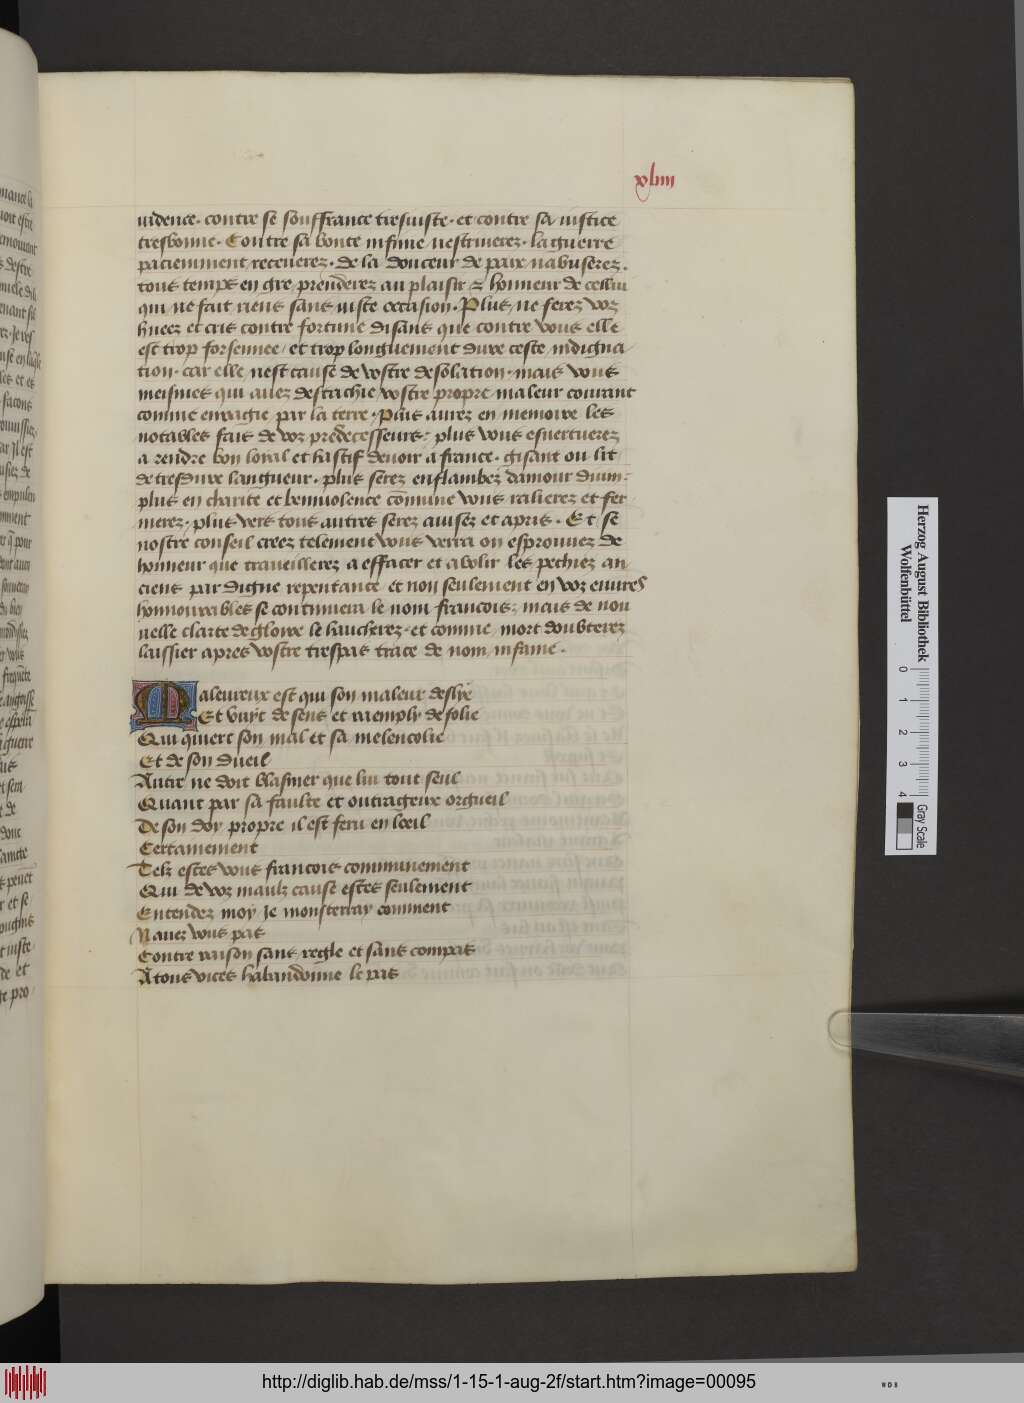 xliiii
uidence. contre se souffrance tresiuiste. et contre sa iustice
tresbonne. Contre sa bonte infinie nestriuerez. la guerre
paciemment receuerez. de la douceur de paix nabuserez.
tous temps en gre prenderez au plaisir & honneur de cellui
qui ne fait riens sans iuste occasion. Plus ne serez voz
huees et cris contre fortune disans que contre vous elle
est trop forsennee / et trop longuement dure ceste indigna
tion. car elle nest cause de vostre desolation. mais vous
meismes qui auez destachie vostre propre maleur courant
comme enragie par la terre. Puis aurez en memoire les
notables fais de voz predecesseurs: plus vous esuertuerez
a rendre bon loial et hastif deuoir a france. gisant ou lit
de tresdure langueur. plus serez enflambez damour diuin:
plus en charite et beniuolence cōmune vous ralierez et fer
merez. plus vers tous autres serez auisez et apris. Et se
nostre conseil creez telement vous verra on esprouuez de
honneur que traueillerez a effacer et abolir les pechiez an
ciens par digne repentance et non seulement en voz euures
honnourables se continuera le nom francois: mais de nou
uelle clarte de gloire le haucherez. et comme mort doubterez
laissier apres vostre trespas trace de nom infame.
Maleureux est qui son maleur deslye
Et vuyt de sens et raemply de folie
Qui quiert son mal et sa melencolie
Et de son dueil
Autre ne doit blasmer que lui tout seul
Quant par sa faulte et outrageux orgueil
De son doy propre il est feru en loeil
Certainement
Telz estes vous francois communement
Qui de voz maulz cause estes seulement
Entendez moy Je monsterray comment
Nauez vous pas
Contre raison sans regle et sans compas
A tous vices habandonne le pas
Herzog August Bibliothek
Wolfenbüttel
0 1 2 3 4
Gray Scale
http://diglib.hab.de/mss/1-15-1-aug-2f/start.htm?image=00095